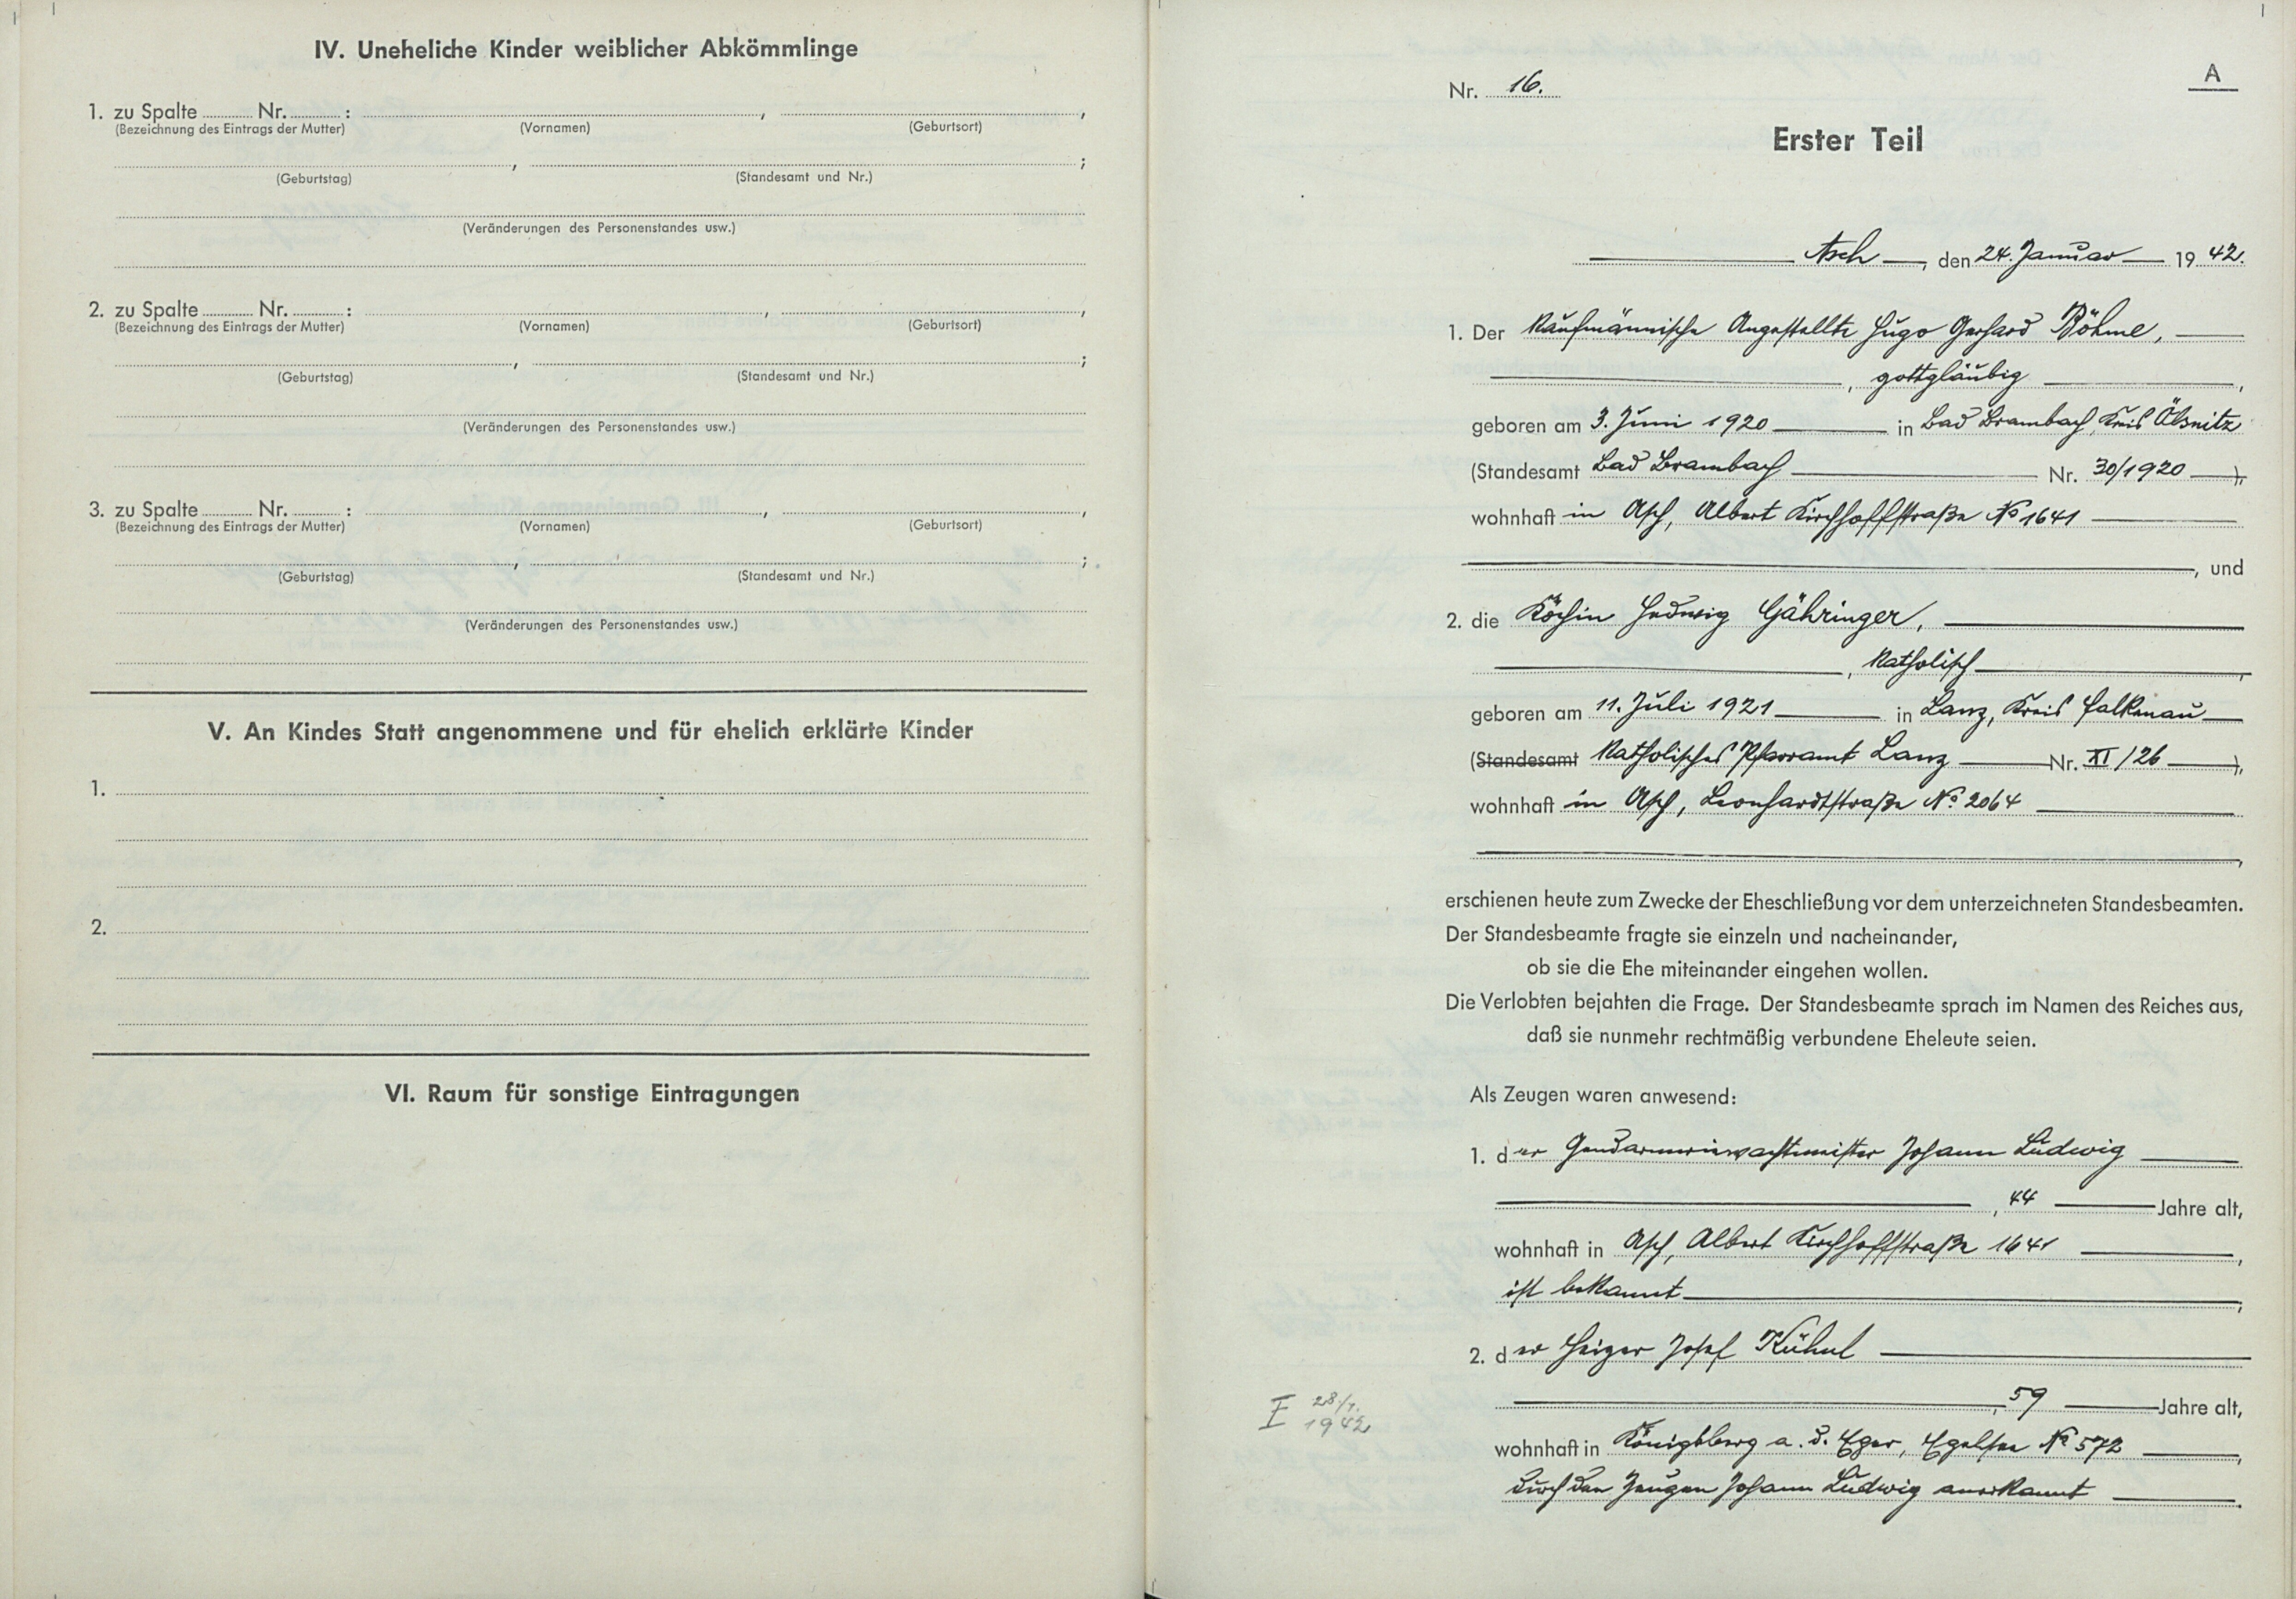 IV. Uneheliche Kinder weiblicher Abkömmlinge
1. zu Spalte ........ Nr. ........ : ........ , ........ ,
(Bezeichnung des Eintrags der Mutter) (Vornamen) (Geburtsort)
........ , ........ ;
(Geburtstag) (Standesamt und Nr.)
(Veränderungen des Personenstandes usw.)
2. zu Spalte ........ Nr. ........ : ........ , ........ ,
(Bezeichnung des Eintrags der Mutter) (Vornamen) (Geburtsort)
........ , ........ ;
(Geburtstag) (Standesamt und Nr.)
(Veränderungen des Personenstandes usw.)
3. zu Spalte ........ Nr. ........ : ........ , ........ ,
(Bezeichnung des Eintrags der Mutter) (Vornamen) (Geburtsort)
........ , ........ ;
(Geburtstag) (Standesamt und Nr.)
(Veränderungen des Personenstandes usw.)
V. An Kindes Statt angenommene und für ehelich erklärte Kinder
1.
2.
VI. Raum für sonstige Eintragungen
A
Nr. 16.
Erster Teil
Asch, den 24. Januar 19 42.
1. Der kaufmännische Angestellte Hugo Gerhard Böhme,
, gottgläubig ,
geboren am 3. Juni 1920 in Bad Brambach, Kreis Ölsnitz
(Standesamt Bad Brambach Nr. 30/1920 ),
wohnhaft in Asch, Albert Kirchhoffstraße No 1641
, und
2. die Köchin Hedwig Gähringer,
, katholisch ,
geboren am 11. Juli 1921 in Lanz, Kreis Falkenau
(Standesamt Katholisches Pfarramt Lanz Nr. XI/26 ),
wohnhaft in Asch, Leonhardtstraße No 2064
,
erschienen heute zum Zwecke der Eheschließung vor dem unterzeichneten Standesbeamten.
Der Standesbeamte fragte sie einzeln und nacheinander,
ob sie die Ehe miteinander eingehen wollen.
Die Verlobten bejahten die Frage. Der Standesbeamte sprach im Namen des Reiches aus,
daß sie nunmehr rechtmäßig verbundene Eheleute seien.
Als Zeugen waren anwesend:
1. der Gendarmeriewachtmeister Johann Ludwig
, 44 Jahre alt,
wohnhaft in Asch, Albert Kirchhoffstraße 1641 ,
ist bekannt ,
2. der Heizer Josef Kühnl
, 59 Jahre alt,
wohnhaft in Königsberg a. d. Eger, Egelsee No 572 ,
durch den Zeugen Johann Ludwig anerkannt .
I 28/1. 1942